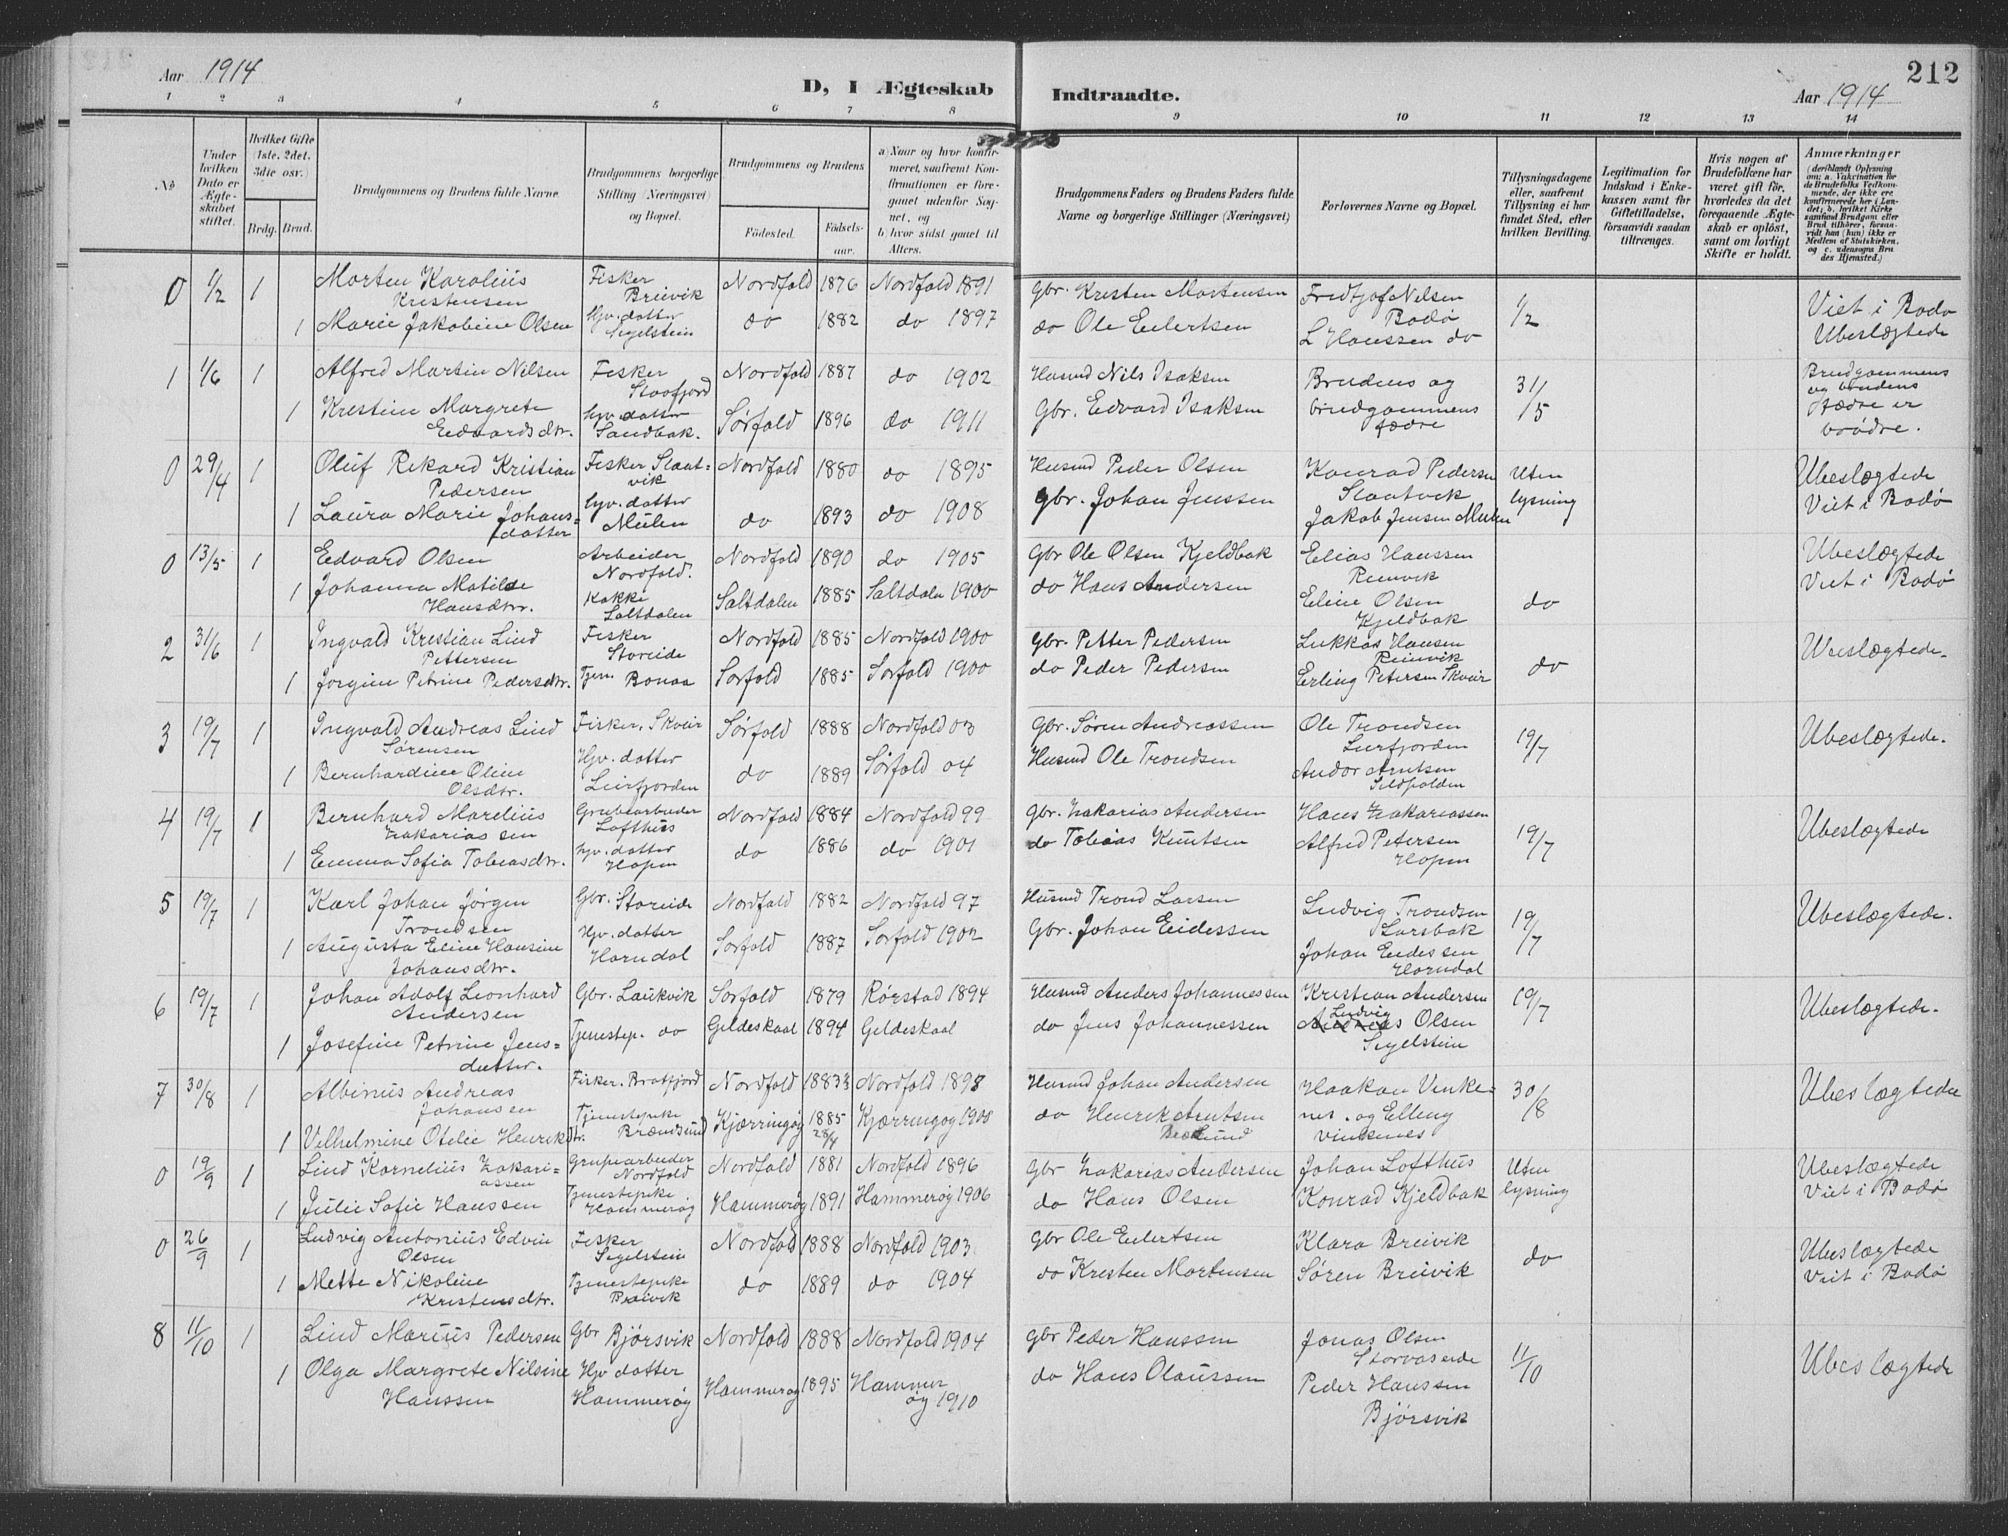 Aar 1914
D, I Ægteskab
Indtraadte.
Aar 1914
212
1 2 3 4 5 6 7 8 9 10 11 12 13 14
No
Under hvilken Dato er Ægteskabet stiftet.
Hvilket Gifte (1ste, 2det, 3die osv.)
Brdg. Brud.
Brudgommens og Brudens fulde Navne.
Brudgommens borgerlige Stilling (Næringsvei) og Bopæl.
Brudgommens og Brudens
Fødested. Fødselsaar.
a) Naar og hvor konfirmeret, saafremt Konfirmationen er foregaaet udenfor Sognet, og
b) hvor sidst gaaet til Alters.
Brudgommens Faders og Brudens Faders fulde Navne og borgerlige Stillinger (Næringsvei)
Forlovernes Navne og Bopæl.
Tillysningsdagene eller, saafremt Tillysning ei har fundet Sted, efter hvilken Bevilling.
Legitimation for Indskud i Enkekassen samt for Giftetilladelse, forsaavidt saadan tiltrænges.
Hvis nogen af Brudefolkene har været gift før, hvorledes da det foregaaende Ægteskab er opløst, samt om lovligt Skifte er holdt.
Anmærkninger
(deriblandt Oplysning om: a. Vakcination for de Brudefolks Vedkommende, der ikke ere konfirmerede her i Landet; b. hvilket Kirkesamfund Brudgom eller Brud tilhører, forsaavidt han (hun) ikke er Medlem af Statskirken, og c. udensogns Brudes Hjemsted.)
0 1/2 1 Morten Karolius Kristensen Fisker Breivik Nordfold 1876 Nordfold 1891 Gbr. Kristen Mortensen Fredtjof Nilsen Bodø 1/2 Viet i Bodø
1 Marie Jakobine Olsen Gbr. datter Segelstein do 1882 do 1897 do Ole Eilertsen L Hanssen do Ubeslægtede
1 1/6 1 Alfred Martin Nilsen Fisker Stavfjord Nordfold 1887 do 1902 Husmd Nils Isaksen Brudens og brudgommens fædre 31/5 Brudgommens og brudens fædre er brødre.
1 Kristine Margrete Edvardsdtr. hjv. datter Sandbak. Sørfold 1896 do 1911 Gbr. Edvard Isaksen
0 29/4 1 Oluf Rikard Kristian Pedersen Fisker Slaatvik Nordfold 1880 do 1895 Husmd Peder Olsen Konrad Pedersen Slaatvik Uten lysning Ubeslægtede
1 Laura Marie Johansdatter hjv. datter Mulen do 1893 do 1908 gbr. Johan Jenssen Jakob Jensen Mulen Viet i Bodø
0 13/5 1 Edvard Olsen Arbeider Nordfold. Nordfold 1890 do 1905 Gbr Ole Olsen Kjeldbak Elias Hanssen Reinvik do Ubeslægtede
1 Johanna Matilde Hansdtr. Kokke Saltdalen Saltdalen 1885 Saltdalen 1900 do Hans Andersen Eline Olsen Kjeldbak Viet i Bodø
2 31/6 1 Ingvald Kristian Lind Pettersen Fisker Storeide Nordfold 1885 Nordfold 1900 Gbr. Petter Pedersen Lukkas Hansen Reinvik do Ubeslægtede.
1 Jorgine Petrine Pedersdtr. Tjen. Bonaa Sørfold 1885 Sørfold 1900 do Peder Pedersen Erling Petersen Skveir
3 19/7 1 Ingvald Andreas Lind Sørensen Fisker. Skveir Sørfold 1888 Nordfold 03 Gbr. Søren Andreassen Ole Trondsen Leirfjorden 19/7 Ubeslægtede.
1 Bernhardine Oline Olsdtr. Hjv. datter Leirfjorden do 1889 Sørfold 04 Husmd Ole Trondsen Andor Arntsen
4 19/7 1 Bernhard Marelius Zakariassen Grubearbeider Lofthus Nordfold 1884 Nordfold 99 Gbr. Zakarias Andersen Hans Zakariassen 19/7 Ubeslægtede
1 Emma Sofia Tobiasdtr. hjv. datter Hopen do 1886 do 1901 do Tobias Knutsen Alfred Petersen Hopen
5 19/7 1 Karl Johan Jørgen Trondsen Gbr. Storeide Nordfold 1882 Nordfold 97 Husmd Trond Larsen Ludvig Trondsen Larsbak 19/7 Ubeslægtede.
1 Augusta Eline Hansine Johansdtr. Hjv. datter Horndal Sørfold 1887 Sørfold 1902 Gbr. Johan Eidessen Johan Eidessen Horndal
6 19/7 1 Johan Adolf Leonhard Andersen Gbr. Laukvik Sørfold 1879 Rørstad 1894 Husmd Anders Johannessen Kristian Andersen 19/7 Ubeslægtede.
1 Josefine Petrine Jensdatter. Tjenestep. do Gildeskaal 1894 Gildeskaal do Jens Johannessen Ludvig Olsen Segelstein
7 30/8 1 Albinus Andreas Johansen Fisker. Brotfjord Nordfold 1883 Nordfold 1898 Husmd Johan Andersen Haakon Vinkenes og Elling Vinkenes 30/8 Ubeslægtede
1 Vilhelmine Otelie Henrikdtr. Tjenestepike Brændsund Kjærringøy 1885 28/4 Kjærringøy 1900 do Henrik Arntsen
0 19/9 1 Lind Kornelius Zakariassen Grupearbeider Nordfold Nordfold 1881 Nordfold 1896 Gbr Zakarias Andersen Johan Lofthus Uten lysning Ubeslægtede
1 Julie Sofie Hanssen Tjenestepike Hammerøy Hammerøy 1891 Hammerøy 1906 do Hans Olsen Konrad Kjeldbak Viet i Bodø
0 26/9 1 Ludvig Antonius Edvin Olsen Fisker Segelstein Nordfold 1888 Nordfold 1903 Gbr Ole Eilertsen Klara Breivik do Ubeslægtede
1 Mette Nikoline Kristensdtr. Tjenestepike Breivik do 1889 do 1904 do Kristen Mortensen Søren Breivik Viet i Bodø
8 11/10 1 Lind Marius Pedersen Gbr Bjørsvik Nordfold 1888 Nordfold 1904 gbr Peder Hanssen Jonas Olsen 11/10 Ubeslægtede
1 Olga Margrete Nilsine Hanssen Hjv datter Hammerøy Hammerøy 1895 Hammerøy 1910 do Hans Olaussen Peder Hanssen Bjørsvik